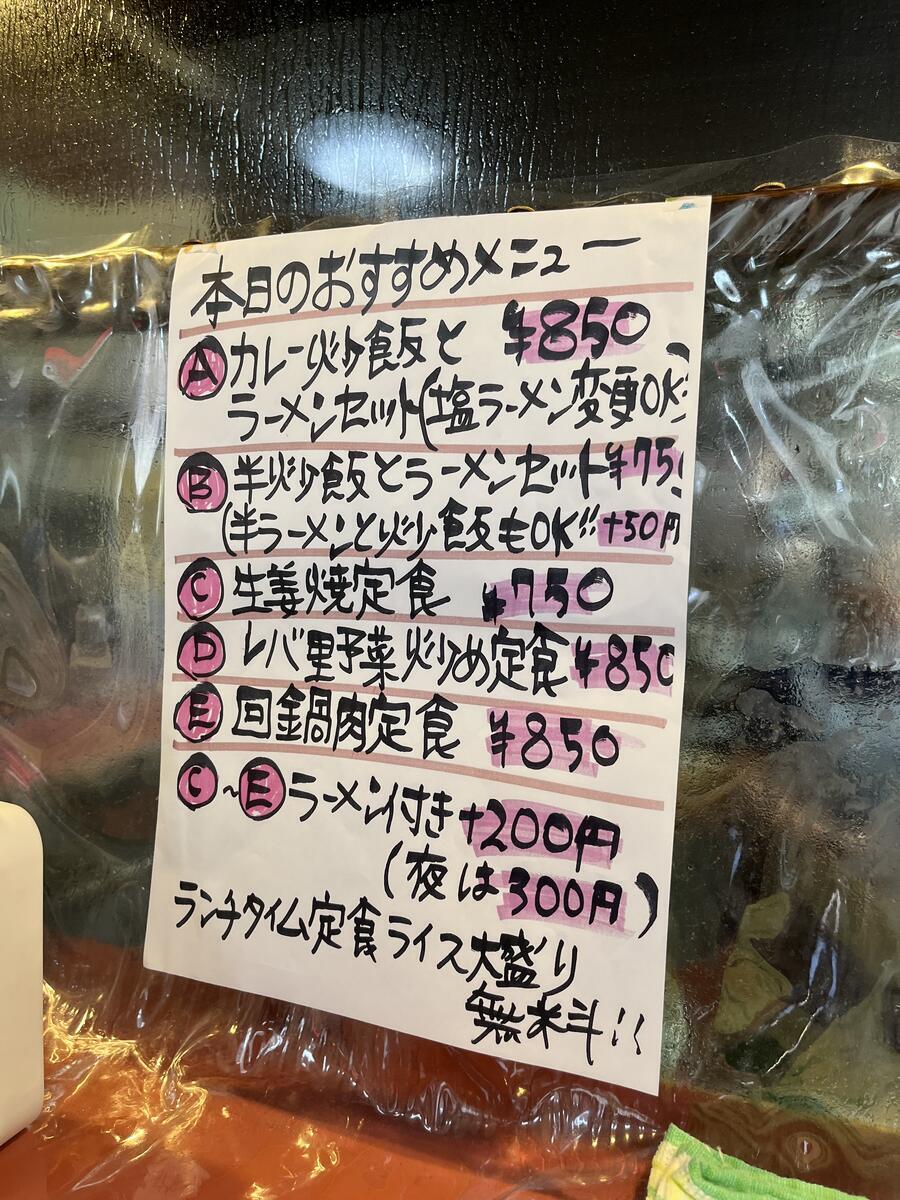 本日のおすすめメニュー
Ⓐ カレー炒飯と ¥850
ラーメンセット(塩ラーメン変更OK)
Ⓑ 半炒飯とラーメンセット ¥75
(半ラーメンと炒飯もOK!! +50円
Ⓒ 生姜焼定食 ¥750
Ⓓ レバ野菜炒め定食 ¥850
Ⓔ 回鍋肉定食 ¥850
Ⓒ~Ⓔ ラーメン付き +200円
(夜は300円)
ランチタイム定食ライス大盛り
無料!!